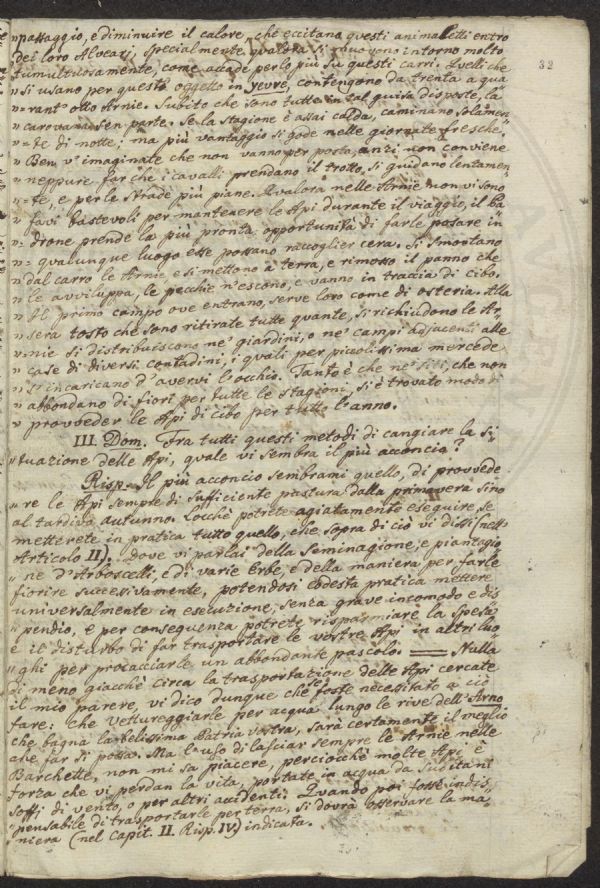 32
„ passaggio, e diminuire il calore, che eccitano questi animaletti entro
dei loro Alvearj, specialmente qualora si muovono intorno molto
tumultuosamente, come accade per lo più su questi carri. Quelli che
„ si usano per questo oggetto in Yevre, contengono da trenta a qua
„ =rant' otto Arnie. Subito che sono tutte in tal guisa disposte, la
„ carovana sen parte. Se la stagione è assai calda, caminano solamen
„ =te di notte; ma più vantaggio si gode nelle giornate fresche.
„ Ben v' imaginate che non vanno per posta, anzi non conviene
„ neppure far che i cavalli prendano il trotto, si guidano lentamen
„ =te, e per le strade più piane. Qualora nelle Arnie non vi sono
„ favi bastevoli per mantenere le Api durante il viaggio, il Pa
„ drone prende la più pronta opportunità di farle posare in
„ = qualunque luogo esse possano raccoglier cera. Si smontano
„ dal carro le Arnie e si mettono a terra, e rimosso il panno che
„ le avviluppa, le pecchie n' escono, e vanno in traccia di cibo.
„ Il primo campo ove entrano, serve loro come di osteria. Alla
„ sera tosto che sono ritirate tutte quante, si richiudono le Ar=
„ =nie si distribuiscono ne' giardini, o ne' campi adjacenti alle
„ case di diversi contadini, i quali per piccolissima mercede
„ s' incaricano d' avervi l'occhio. Tanto è che ne' siti, che non
„ abbondano di fiori per tutte le stagioni, si è trovato modo di
„ provveder le Api di cibo per tutto l'anno.
III. Dom. Fra tutti questi metodi di cangiare la si=
„ tuazione delle Api, quale vi sembra il più acconcio?
Risp. Il più acconcio sembrami quello, di provvede
„ re le Api sempre di sufficiente pastura dalla primavera sino
al tardivo autunno. Locchè potrete agiatamente eseguire, se
metterete in pratica tutto quello, che sopra di ciò vi dissi (nell'
Articolo II). Dove vi parlai della seminagione, e piantagio
„ ne d'Arboscelli, e di varie Erbe, e della maniera per farle
fiorire successivamente, potendosi codesta pratica mettere
universalmente in esecuzione, senza grave incomodo e dis
„ pendio, e per conseguenza potrete risparmiare la spesa
e il disturbo di far trasportare le vostre Api in altri luo
„ ghi per procacciarle un abbondante pascolo. == Nulla
di meno giacchè circa la trasportazione delle Api cercate
il mio parere, vi dico dunque che foste necessitato a ciò
fare: che vettureggiarle per acqua lungo le rive dell'Arno
che bagna la belissima Patria vostra, sarà certamente il meglio
che far si possa. Ma l'uso di lasciar sempre le Arnie nelle
Barchette, non mi sa piacere, perciocchè molte Api è
forza che vi perdan la vita, portate in acqua da subitani
soffj di vento, o per altri accidenti. Quando poi fosse indis
„ pensabile di trasportarle per terra, si dovrà osservare la ma
„ niera (nel Capit. II. Risp. IV.) indicata.